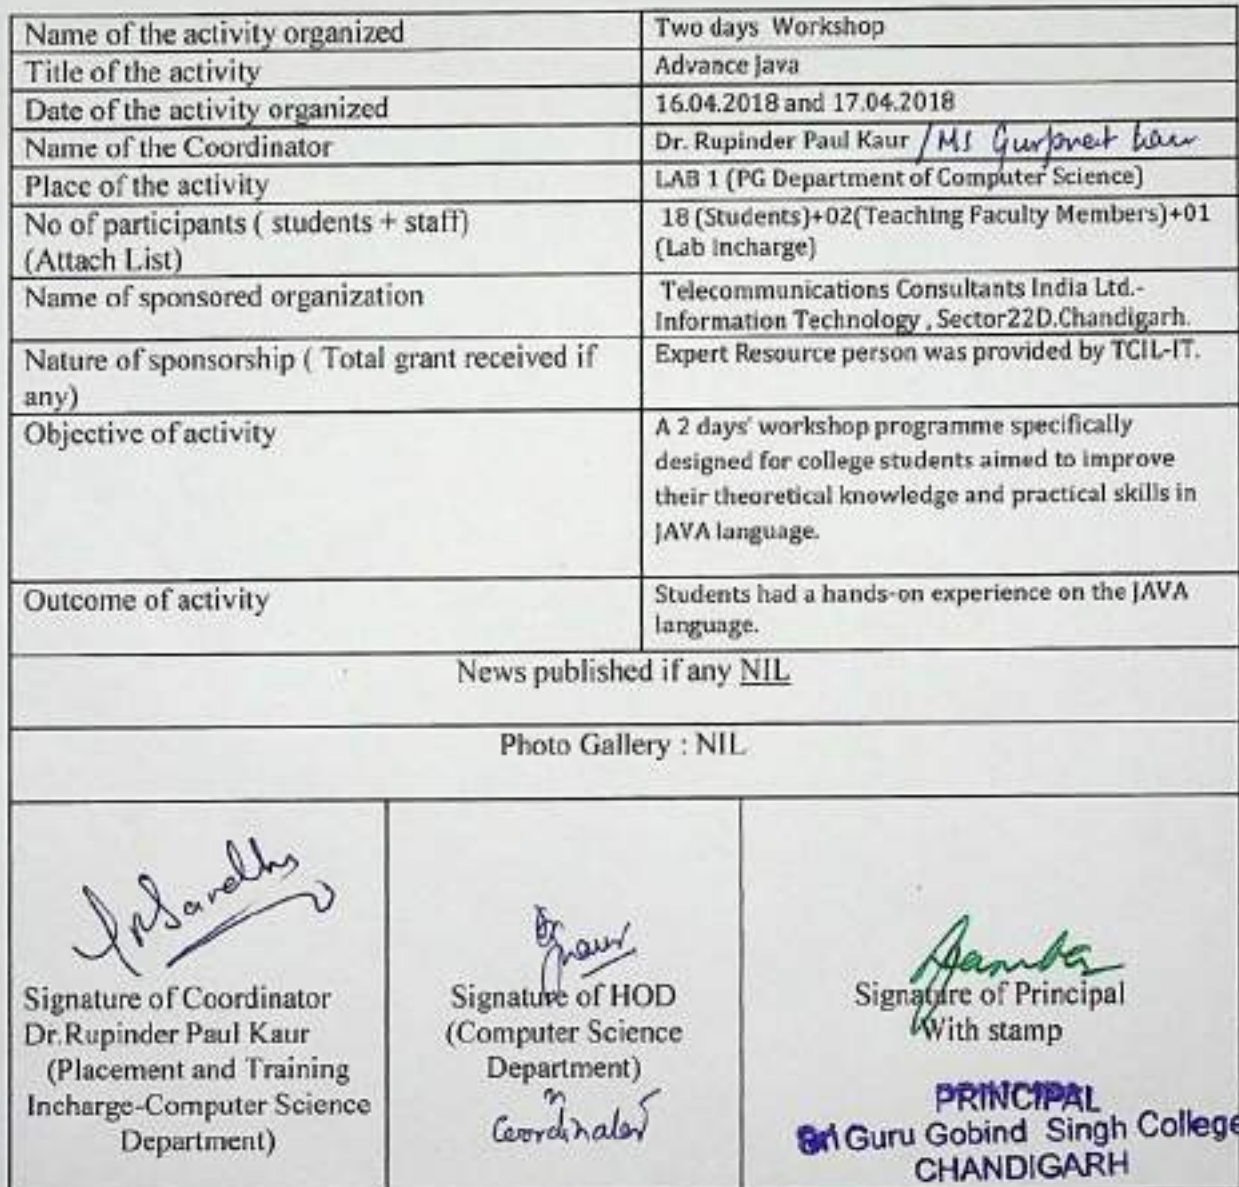 Name of the activity organized
Two days Workshop
Title of the activity
Advance Java
Date of the activity organized
16.04.2018 and 17.04.2018
Name of the Coordinator
Dr. Rupinder Paul Kaur / Ms Gurpreet Kaur
Place of the activity
LAB 1 (PG Department of Computer Science)
No of participants ( students + staff)
(Attach List)
18 (Students)+02(Teaching Faculty Members)+01
(Lab Incharge)
Name of sponsored organization
Telecommunications Consultants India Ltd.-
Information Technology , Sector22D.Chandigarh.
Nature of sponsorship ( Total grant received if
any)
Expert Resource person was provided by TCIL-IT.
Objective of activity
A 2 days' workshop programme specifically
designed for college students aimed to improve
their theoretical knowledge and practical skills in
JAVA language.
Outcome of activity
Students had a hands-on experience on the JAVA
language.
News published if any NIL
Photo Gallery : NIL
Signature of Coordinator
Dr.Rupinder Paul Kaur
(Placement and Training
Incharge-Computer Science
Department)
Signature of HOD
(Computer Science
Department)
Coordinator
Signature of Principal
With stamp
PRINCIPAL
Sri Guru Gobind Singh College
CHANDIGARH